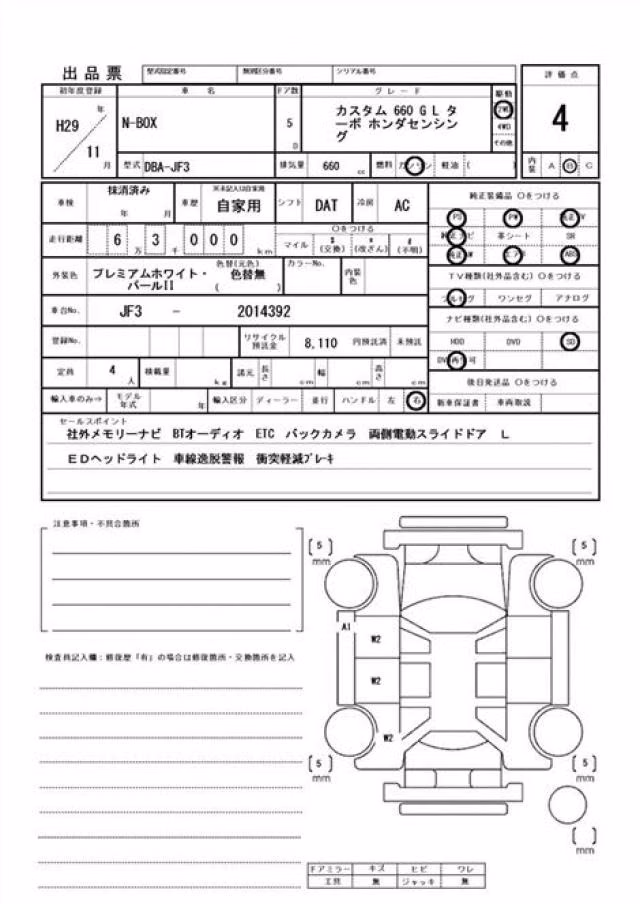 出品票 型式指定番号 類別区分番号 シリアル番号
評価点
初年度登録 車名 ドア数 グレード 駆動
H29 年 N-BOX 5 D カスタム 660 G L タ 2WD 4
ーボ ホンダセンシン 4WD
グ その他
11 月 型式 DBA-JF3 排気量 660 cc 燃料 ガソリン 軽油 ( ) 内装 A B C
車検 抹消済み 年 月 車歴 ※未記入は自家用 自家用 シフト DAT 冷房 AC
純正装備品 〇をつける
PS PW 純正TV
走行距離 6 万 3 千 0 0 0 km 〇をつける
マイル $ (交換) * (改ざん) # (不明)
純正ナビ 革シート SR
純正AW エアB ABS
外装色 プレミアムホワイト・ パールII 色替(元色) 色替無 ( ) カラーNo. 内装色
TV種類(社外品含む) 〇をつける
フルセグ ワンセグ アナログ
車台No. JF3 - 2014392
ナビ種類(社外品含む) 〇をつける
登録No. リサイクル預託金 8,110 円預託済 未預託
HDD DVD SD
DVD再生可
定員 4 人 積載量 kg 諸元 長さ cm 幅 cm 高さ cm
後日発送品 〇をつける
輸入車のみ⇒ モデル年式 年 輸入区分 ディーラー 並行 ハンドル 左 右 新車保証書 車両取説
セールスポイント
社外メモリーナビ BTオーディオ ETC バックカメラ 両側電動スライドドア L
EDヘッドライト 車線逸脱警報 衝突軽減ブレーキ
注意事項・不具合箇所
[ 5 ] mm
[ 5 ] mm
A1
W2
検査員記入欄:修復歴「有」の場合は修復箇所・交換箇所を記入
W2
W2
[ 5 ] mm
[ 5 ] mm
[ ] mm
ドアミラー キズ ヒビ ワレ
工具 無 ジャッキ 無